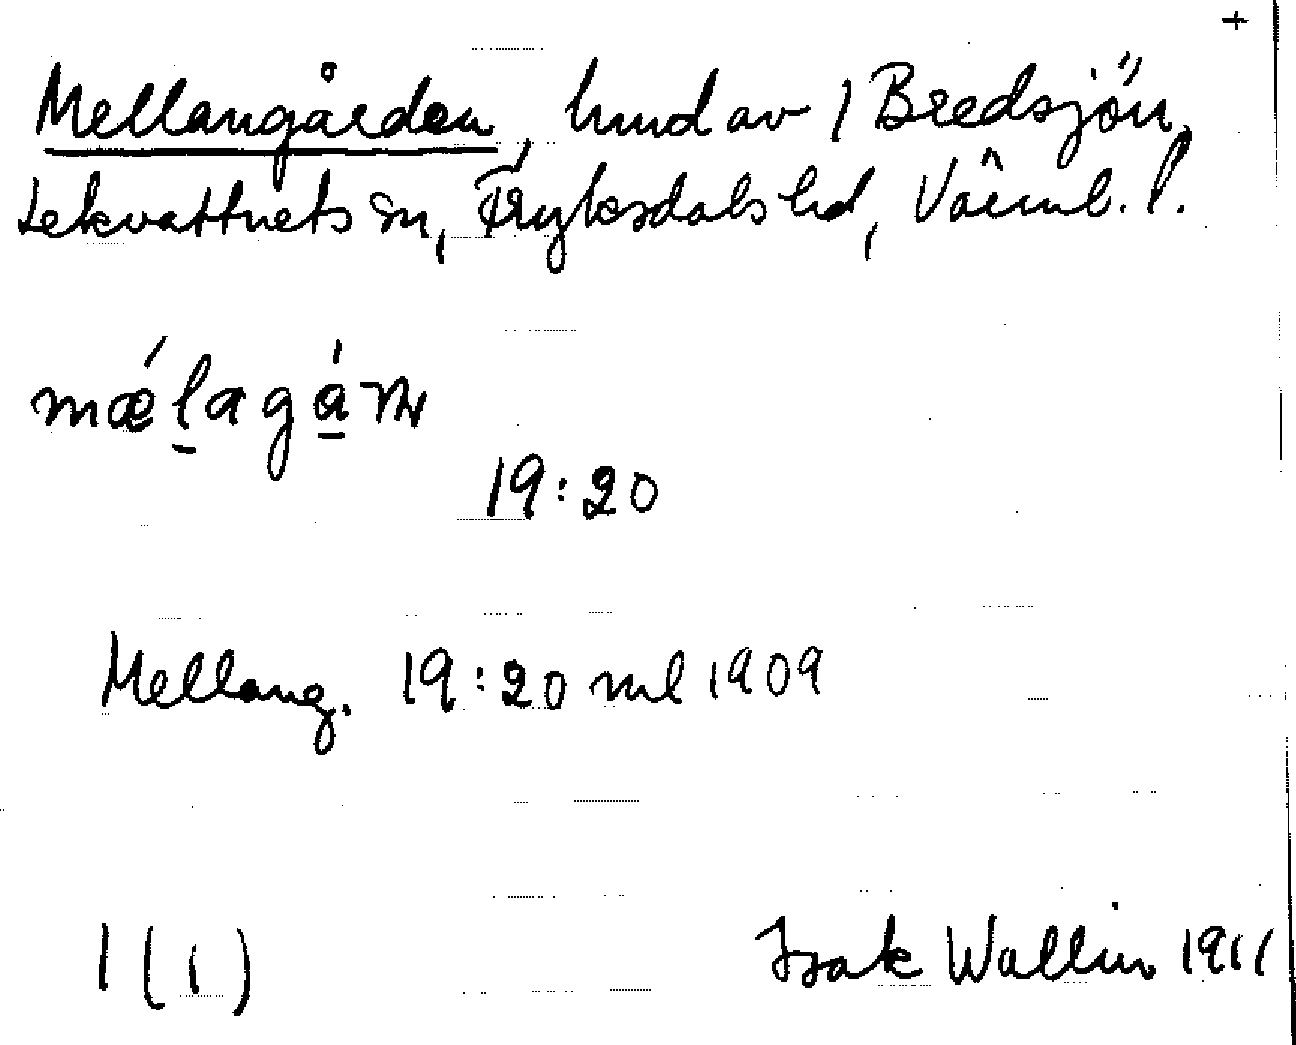 +
Mellangården, hmd av 1 Bredsjön,
Lekvattnets sn, Fryksdals hd, Värml. l.
mǽlagá
19:20
Mellang. 19:20 ml 1909
1 (1)
Isak Wallin 1911